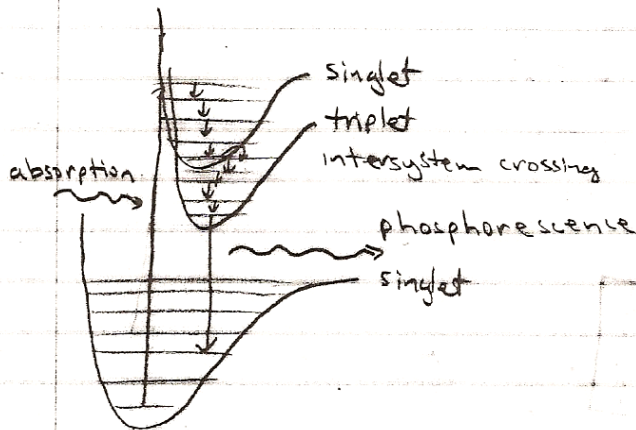 singlet
triplet
intersystem crossing
absorption
phosphorescence
singlet